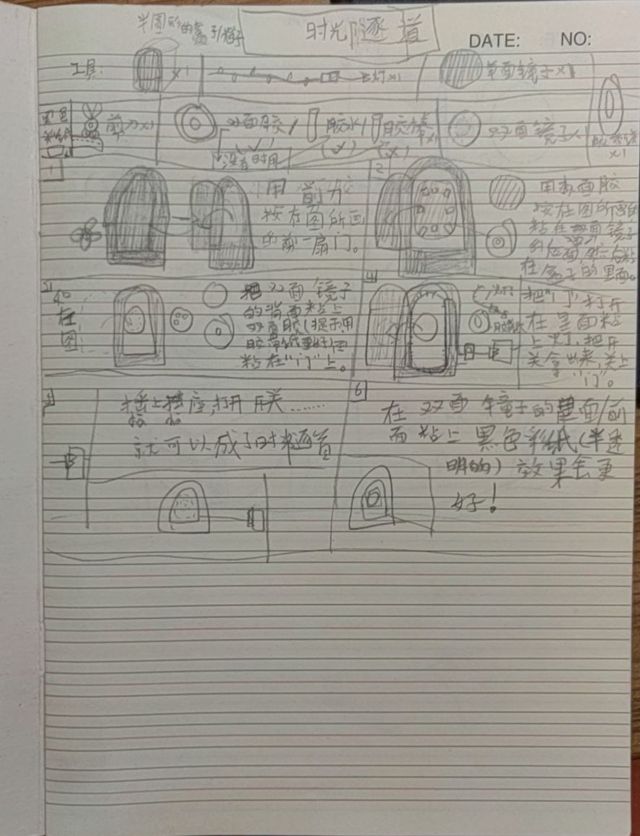 半圆形的盒子/箱子
时光隧道
DATE: NO:
工具:
×1
灯×1
单面镜子×1
剪刀×1
双面胶/
胶水/
胶棒
(✓)
(×)
双面镜子×1
×1
没有时用
1
用剪刀
按左图所画
的剪一扇门。
2
用双面胶
按左图所画
粘在
在盒子的里面。
3
如
左
图
把双面镜子
的背面粘上
双面胶(提示:用
胶带纸更好)
粘在“门”上。
4
把“灯”打开
在里面粘
上灯,把开
关拿出来,关上
“门”。
5
插上插座,打开开关……
就可以成了时光隧道
6
在双面镜子的里面/前
面粘上黑色彩纸(半透
明的)效果会更
好!